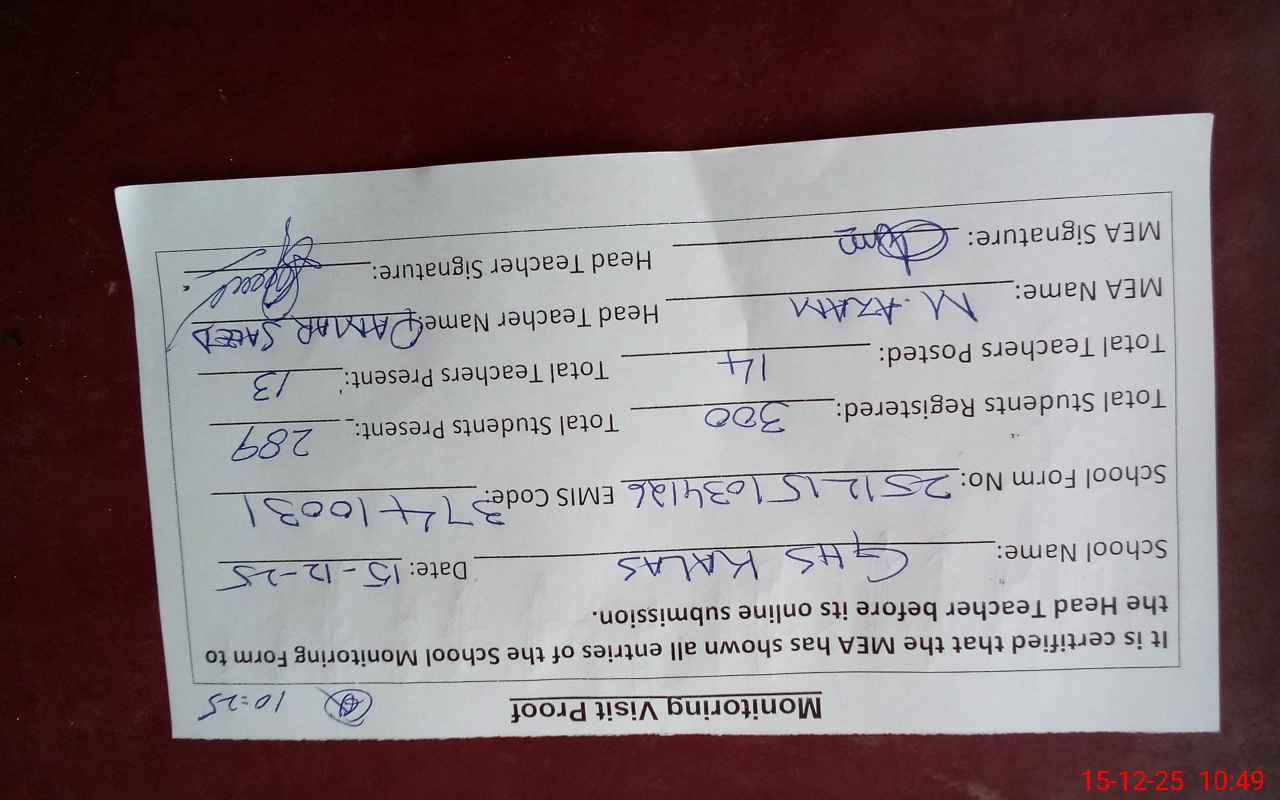 Monitoring Visit Proof 10=25
It is certified that the MEA has shown all entries of the School Monitoring Form to
the Head Teacher before its online submission.
School Name: GHS KALAS Date: 15-12-25
School Form No: 2512151034126 EMIS Code: 37410031
Total Students Registered: 300 Total Students Present: 289
Total Teachers Posted: 14 Total Teachers Present: 13
MEA Name: M. AZAM Head Teacher Name: QAMAR SAEED
MEA Signature: Head Teacher Signature:
15-12-25 10:49